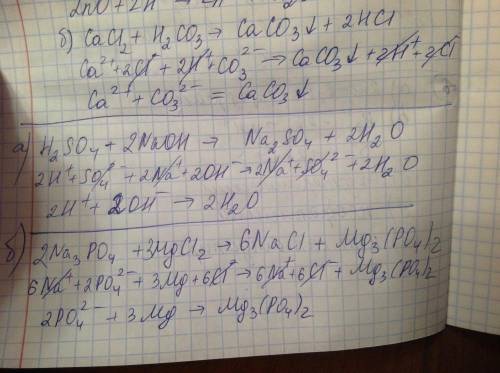 б) CaCl₂ + H₂CO₃ → CaCO₃↓ + 2HCl
Ca²⁺ + 2Cl⁻ + 2H⁺ + CO₃²⁻ → CaCO₃↓ + 2H⁺ + 2Cl⁻
Ca²⁺ + CO₃²⁻ = CaCO₃↓
а) H₂SO₄ + 2NaOH → Na₂SO₄ + 2H₂O
2H⁺ + SO₄²⁻ + 2Na⁺ + 2OH⁻ → 2Na⁺ + SO₄²⁻ + 2H₂O
2H⁺ + 2OH⁻ → 2H₂O
б) 2Na₃PO₄ + 3MgCl₂ → 6NaCl + Mg₃(PO₄)₂
6Na⁺ + 2PO₄²⁻ + 3Mg + 6Cl⁻ → 6Na⁺ + 6Cl⁻ + Mg₃(PO₄)₂
2PO₄²⁻ + 3Mg → Mg₃(PO₄)₂